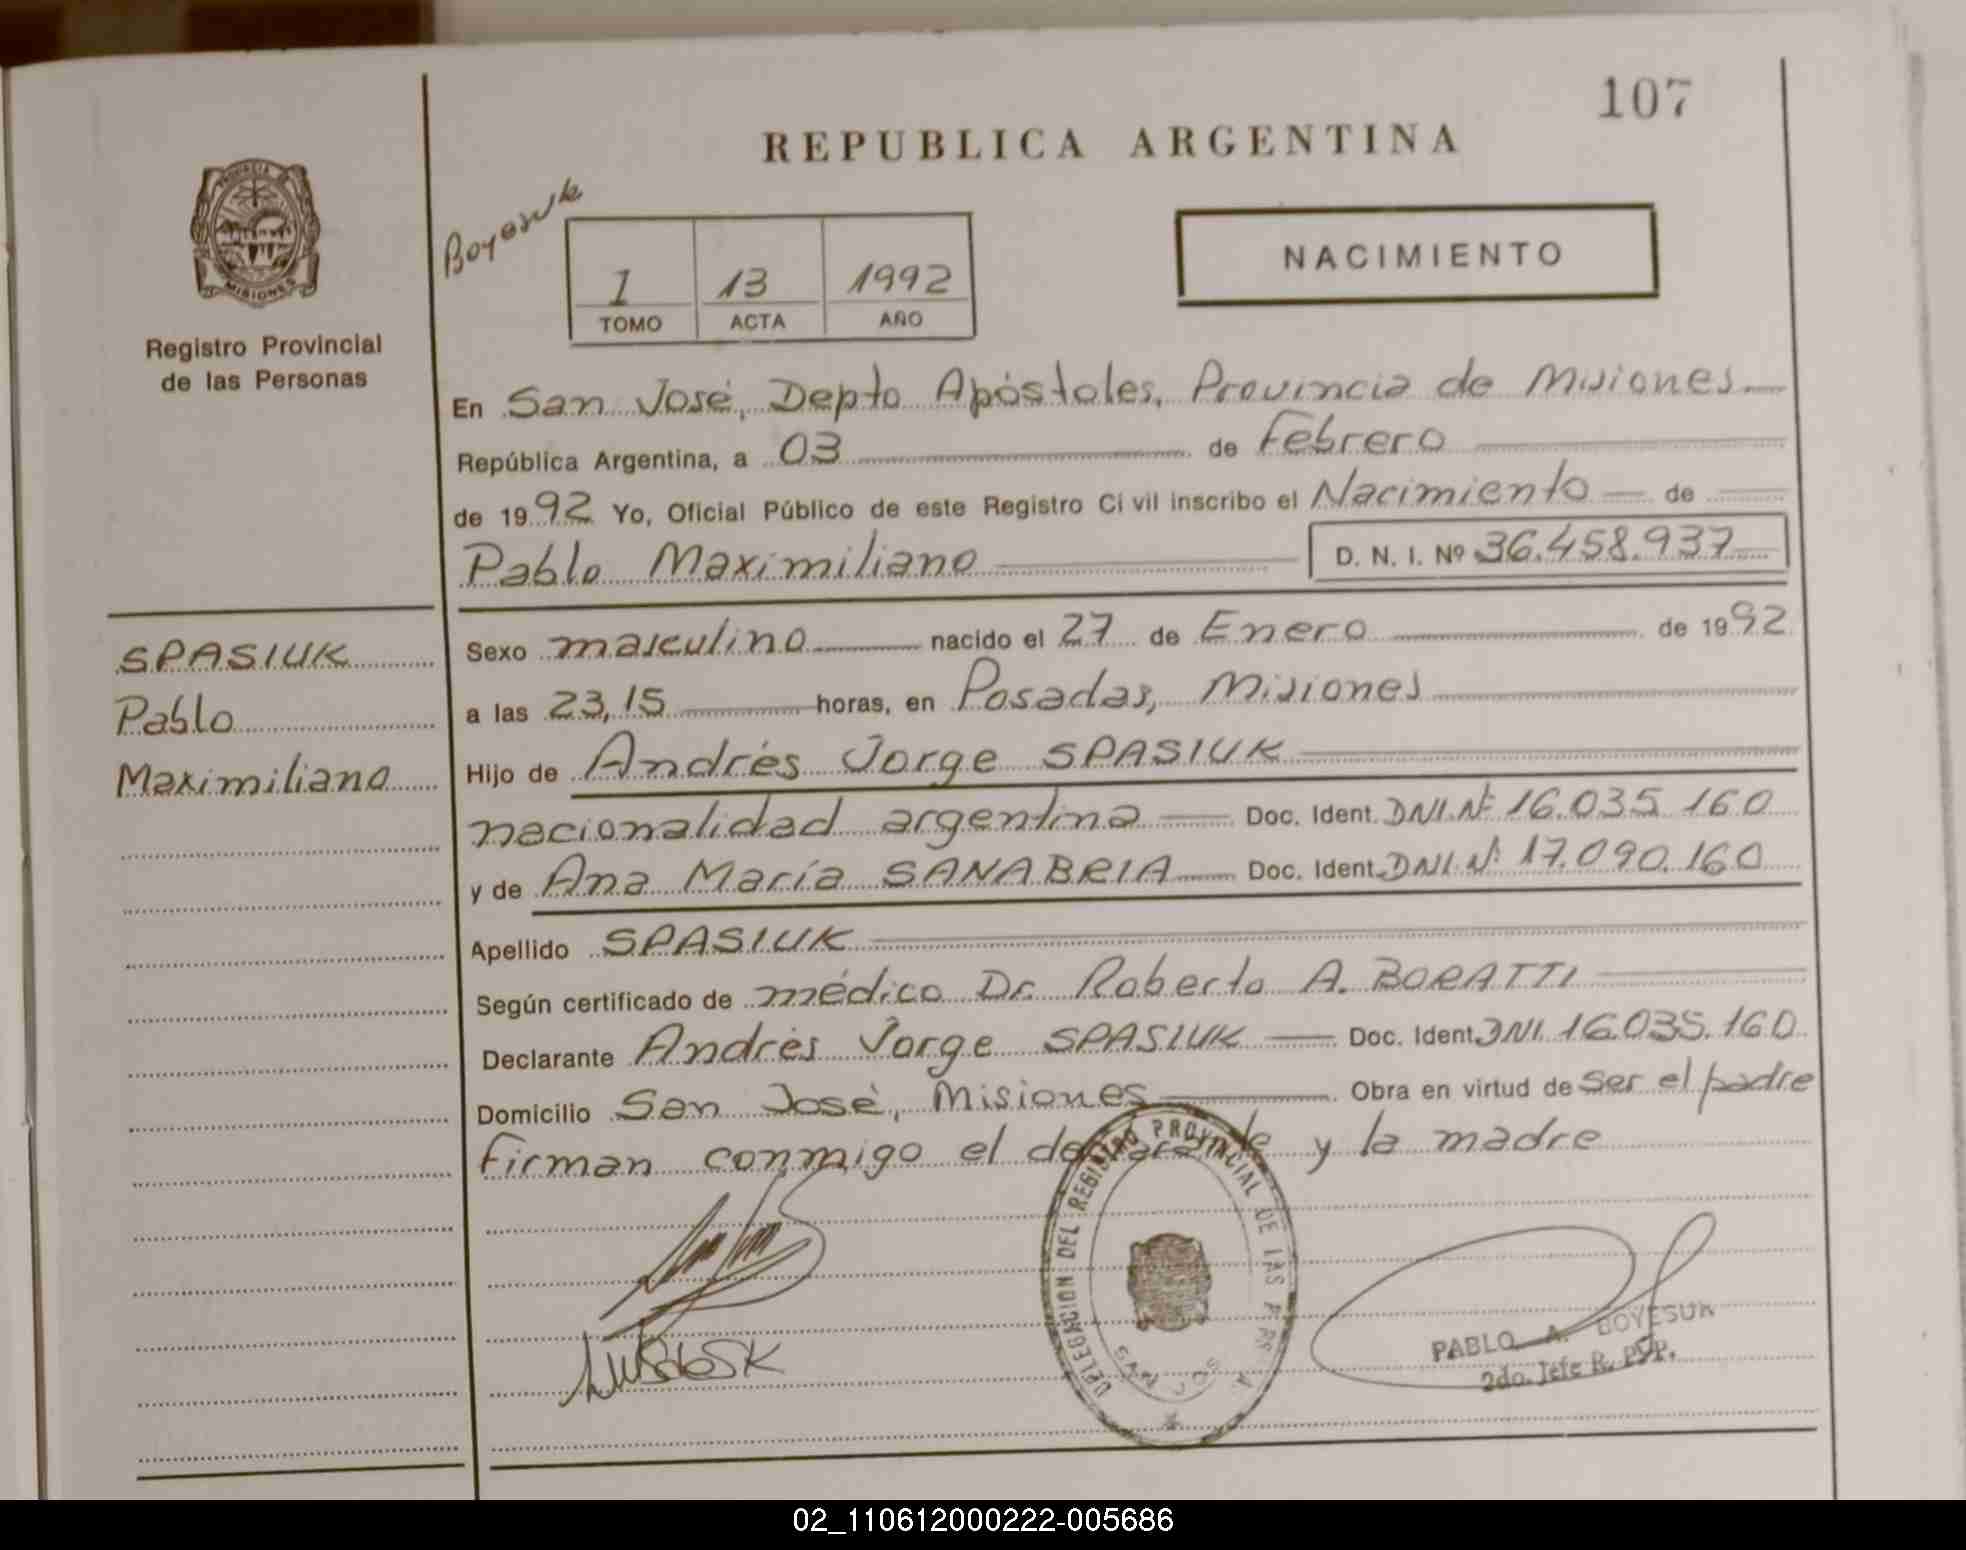 107
REPUBLICA ARGENTINA
PROVINCIA DE
MISIONES
Registro Provincial
de las Personas
Boyesuk
1 13 1992
TOMO ACTA AÑO
NACIMIENTO
En San José, Depto Apóstoles, Provincia de Misiones
República Argentina, a 03 de Febrero
de 1992 Yo, Oficial Público de este Registro Civil inscribo el Nacimiento de
Pablo Maximiliano D. N. I. Nº 36.458.937
SPASIUK
Pablo
Maximiliano
Sexo masculino nacido el 27 de Enero de 1992
a las 23,15 horas, en Posadas, Misiones
Hijo de Andrés Jorge SPASIUK
nacionalidad argentina Doc. Ident. DNI.Nº 16.035.160
y de Ana María SANABRIA Doc. Ident. DNI.Nº 17.090.160
Apellido SPASIUK
Según certificado de médico Dr. Roberto A. BORATTI
Declarante Andrés Jorge SPASIUK Doc. Ident. DNI. 16.035.160
Domicilio San José, Misiones Obra en virtud de ser el padre
Firman conmigo el declarante y la madre
DELEGACION DEL REGISTRO PROVINCIAL DE LAS PERS
SAN JOSE
PABLO A. BOYESUK
2do. Jefe R. P. P.
02_110612000222-005686